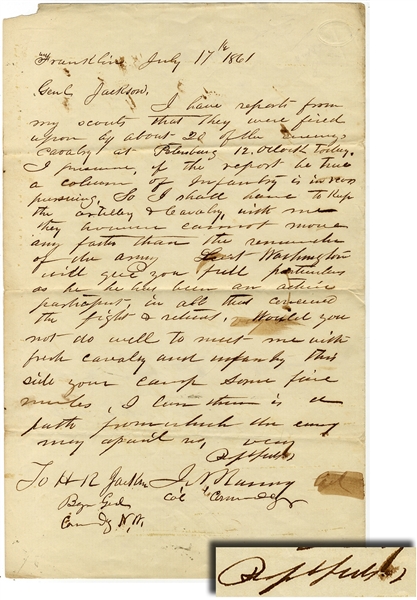 Franklin July 17th 1861
Genl Jackson,
I have reports from
my scouts that they were fired
upon by about 20 of the enemys
cavalry at Petersburg 12. Oclock today.
I presume, if the report be true
a column of Infantry is in
pursuing. So I shall have to keep
the artillery & Cavalry, with me
they however cannot move
any faster than the remainder
of the army Lieut Washington
will give you full particulars
as he has been an active
participant, in all that concerned
the fight & retreat. Would you
not do well to meet me with
fresh cavalry and infantry this
side your camp some five
miles, I there is a
path from which the enemy
may us, very
Respectfully
To H R Jackson J. N. Ramsey
Brgr Genl Col Commdg
Comdg N. W.
Respectfully